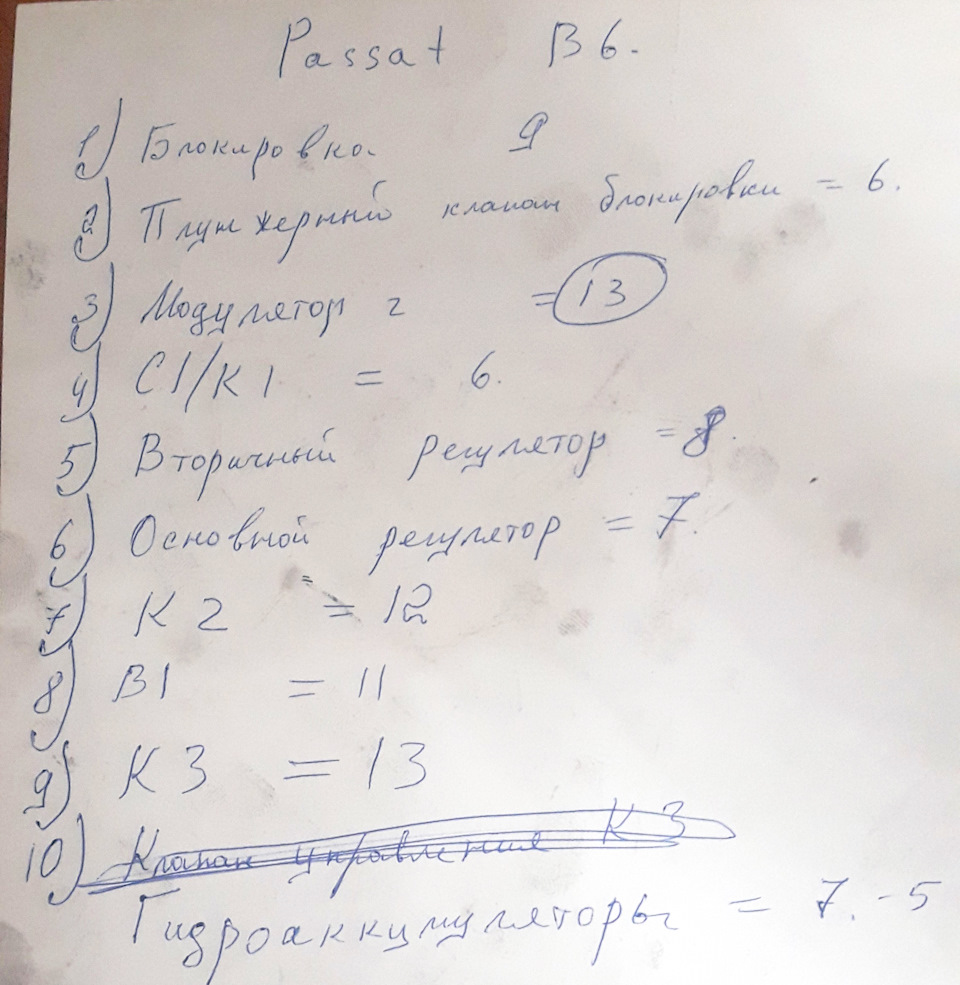 Passat B6.
1) Блокировка. 9
2) Плунжерный клапан блокировки = 6.
3) Модулятор 2 = 13
4) C1/K1 = 6.
5) Вторичный регулятор = 8.
6) Основной регулятор = 7.
7) K2 = 12
8) B1 = 11
9) K3 = 13
10) Клапан управления K3
Гидроаккумуляторы = 7.-5